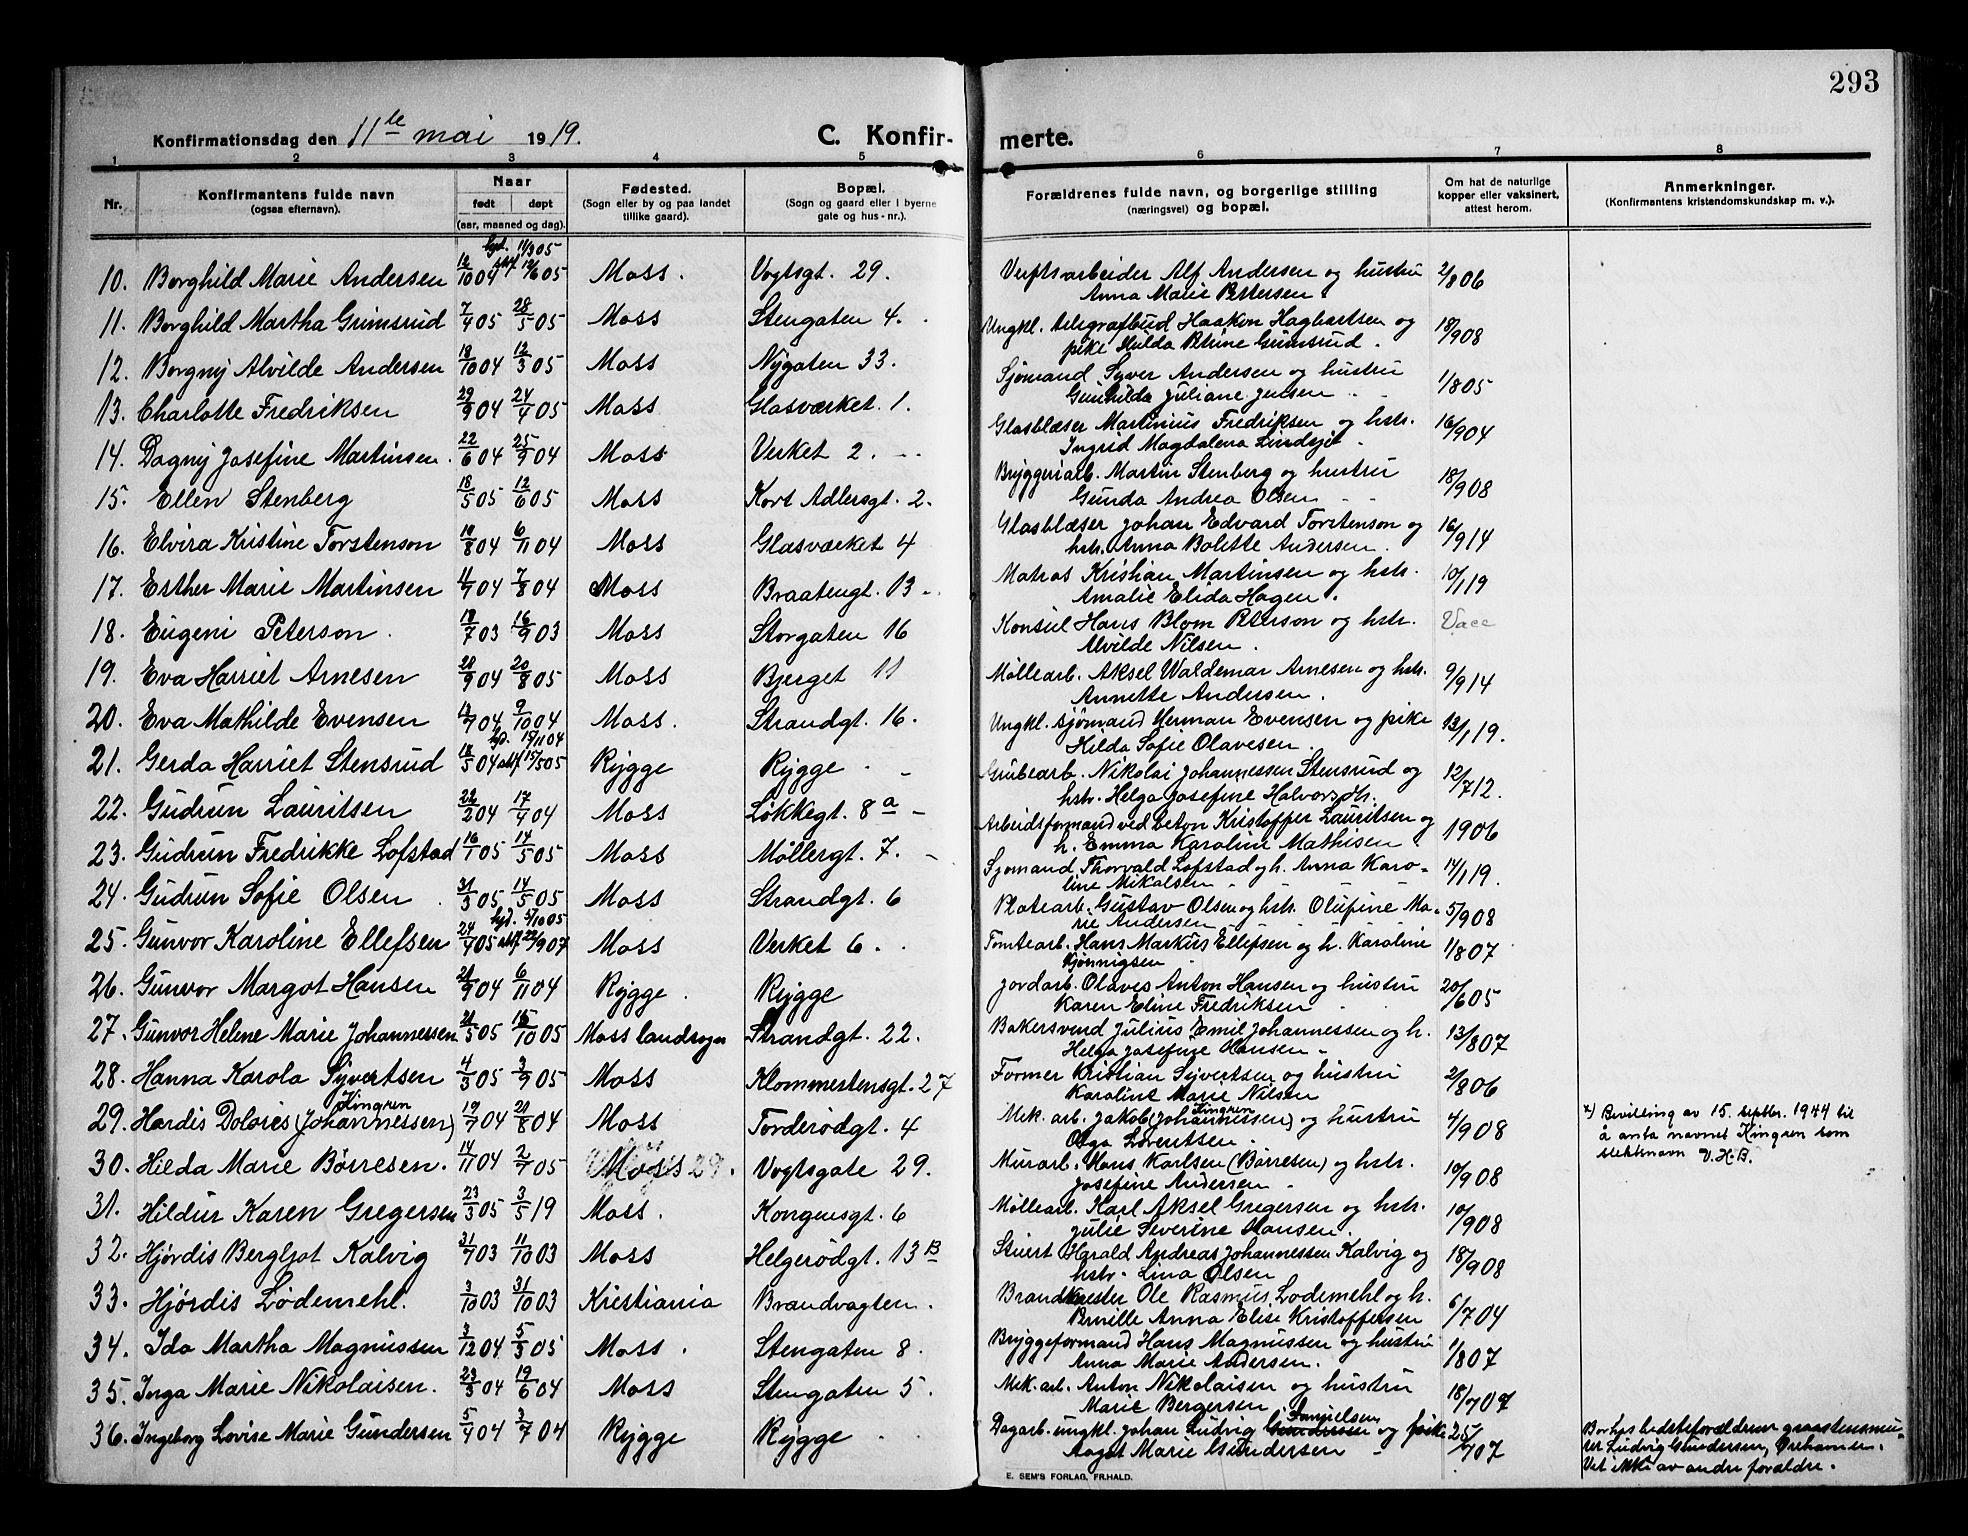 293
Konfirmationsdag den 11te mai 1919.
C. Konfirmerte.
1 2 3 4 5 6 7 8
Nr.
Konfirmantens fulde navn
(ogsaa efternavn).
Naar
født døpt
(aar, maaned og dag).
Fødested.
(Sogn eller by og paa landet
tillike gaard).
Bopæl.
(Sogn og gaard eller i byerne
gate og hus-nr.).
Forældrenes fulde navn, og borgerlige stilling
(næringsvei) og bopæl.
Om hat de naturlige
kopper eller vaksinert,
attest herom.
Anmerkninger.
(Konfirmantens kristendomskundskap m. v.).
hjd. 11/3 05
10. Borghild Marie Andersen 12/10 04 12/6 05 Moss. Vogtsgt. 29. Verftsarbeider Alf Andersen og hustru 2/8 06
Anna Marie Pettersen.
11. Borghild Martha Grimsrud 7/4 05 28/5 05 Moss Stengaten 4. Ungkl. telegrafbud Haakon Hagbartsen og 18/9 08
pike Hulda Petrine Grimsrud.
12. Borgny Alvilde Andersen 18/10 04 12/3 05 Moss Nygaten 33. Sjømand Syver Andersen og hustru 1/8 05
Gunhilda Juliane Jensen
13. Charlotte Fredriksen 29/9 04 24/4 05 Moss Glasværket 1. Glasblæser Martinius Fredriksen og hstr. 16/9 04
Ingrid Magdalena Lindqvit
14. Dagny Josefine Martinsen 22/6 04 25/9 04 Moss Verket 2.
15. Ellen Stenberg 18/5 05 12/6 05 Moss Kort Adlersgt. 2. Bryggeriarb. Martin Stenberg og hustru 18/9 08
Gunda Andrea Olsen
16. Elvira Kristine Torstenson 19/8 04 6/11 04 Moss Glasværket 4 Glasblæser Johan Edvard Torstenson og 16/9 14
hstr. Anna Bolette Andersen.
17. Esther Marie Martinsen 4/7 04 7/8 04 Moss Braatengt. 13 Matros Kristian Martinsen og hstr. 10/1 19
Amalie Elida Hagen.
18. Eugeni Peterson 18/7 03 16/9 03 Moss Storgaten 16 Konsul Hans Blom Peterson og hstr. Vacc
Alvilde Nilsen.
19. Eva Harriet Arnesen 28/9 04 20/8 05 Moss Bjerget 11 Møllearb. Aksel Waldemar Arnesen og hstr. 9/9 14
Annette Andersen.
20. Eva Mathilde Evensen 13/7 04 9/10 04 Moss. Strandgt. 16. Ungkl. sjømand Herman Evensen og pike 13/1 19.
Hilda Sofie Olavesen.
hjd. 15/11 04
21. Gerda Harriet Stensrud 18/5 04 15/5 05 Rygge Rygge Grubearb. Nikolai Johannessen Stensrud og 12/7 12.
hstr. Helga Josefine Halvorsdtr.
22. Gudrun Lauritsen 22/2 04 17/4 04 Moss Løkkegt. 8a Arbeidsformand ved beton Kristoffer Lauritsen og 1906
h. Emma Karoline Mathisen
23. Gudrun Fredrikke Lofstad 16/1 05 14/5 05 Moss Møllergt. 7. Sjømand Thorvald Lofstad og h. Anna Karo- 14/1 19.
line Mikalsen
24. Gudrun Sofie Olsen 31/3 05 14/5 05 Moss Strandgt. 6 Platearb. Gustav Olsen og hstr. Olufine Ma- 5/9 08
rie Andersen
hjd. 5/10 05
25. Gunvor Karoline Ellefsen 24/4 05 22/9 07 Moss Verket 6. Tomtearb. Hans Markus Ellefsen og h. Karoline 1/8 07
Kjønnigsen
26. Gunvor Margot Hansen 21/9 04 6/11 04 Rygge Rygge Jordarb. Olaves Anton Hansen og hustru 20/6 05
Karen Eline Fredriksen
27. Gunvor Helene Marie Johannessen 21/5 05 15/10 05 Moss landsogn Strandgt. 22. Bakersvend Julius Emil Johannessen og h. 13/8 07
Helga Josefine Hansen
28. Hanna Karola Syvertsen 4/3 05 3/9 05 Moss Klommestensgt. 27 Former Kristian Syvertsen og hustru 2/8 06
Karoline Marie Nilsen
29. Hardis Dolores (Johannessen) Kingren 19/7 04 21/8 04 Moss Torderødgt. 4 Mek. arb. Jakob (Johannessen) Kingren og hustru 4/9 08
Olga Lorentsen.
x) Bevilling av 15. septbr. 1944 til
å anta navnet Kingren som
slektsnavn V.H.B.
30. Hilda Marie Børresen. 14/11 04 2/7 05 Moss Vogtsgate 29. Murarb. Hans Karlsen (Børresen) og hstr. 10/9 08
Josefine Andersen
31. Hildur Karen Gregersen 23/3 05 3/5 19 Moss. Kongensgt. 6 Møllearb. Karl Aksel Gregersen og hstr. 10/9 08
Julie Severine Hansen.
32. Hjørdis Bergljot Kalvig 31/7 03 11/10 03 Moss Helgerødgt. 13B Stuert Harald Andreas Johannessen Kalvig og 18/9 08
hstr. Lina Olsen
33. Hjørdis Lødemehl. 3/10 03 31/10 03 Kristiania Brandvagten. Brandmester Ole Rasmus Lødemehl og h. 6/7 04
Pernille Anna Elise Kristoffersen
34. Ida Martha Magnussen 3/12 04 5/3 05 Moss Stengaten 8. Bryggeformand Hans Magnussen og hustru 1/8 07
Anna Marie Andersen.
35. Inga Marie Nikolaisen. 23/3 04 19/6 04 Moss Stengaten 5. Mek. arb. Anton Nikolaisen og hustru 18/7 07
Marie Bergersen
36. Ingeborg Lovise Marie Gundersen 5/4 04 3/7 04 Rygge Rygge Dagarb. ungkl. Johan Ludvig Samuelsen og pike 25/6 07
Aagot Marie Gundersen
Bor hos bedsteforældrene graastensmu-
rer Ludvig Gundersen, Ørehavnen.
Vet ikke av andre forældre.
E. SEM'S FORLAG, FR.HALD.